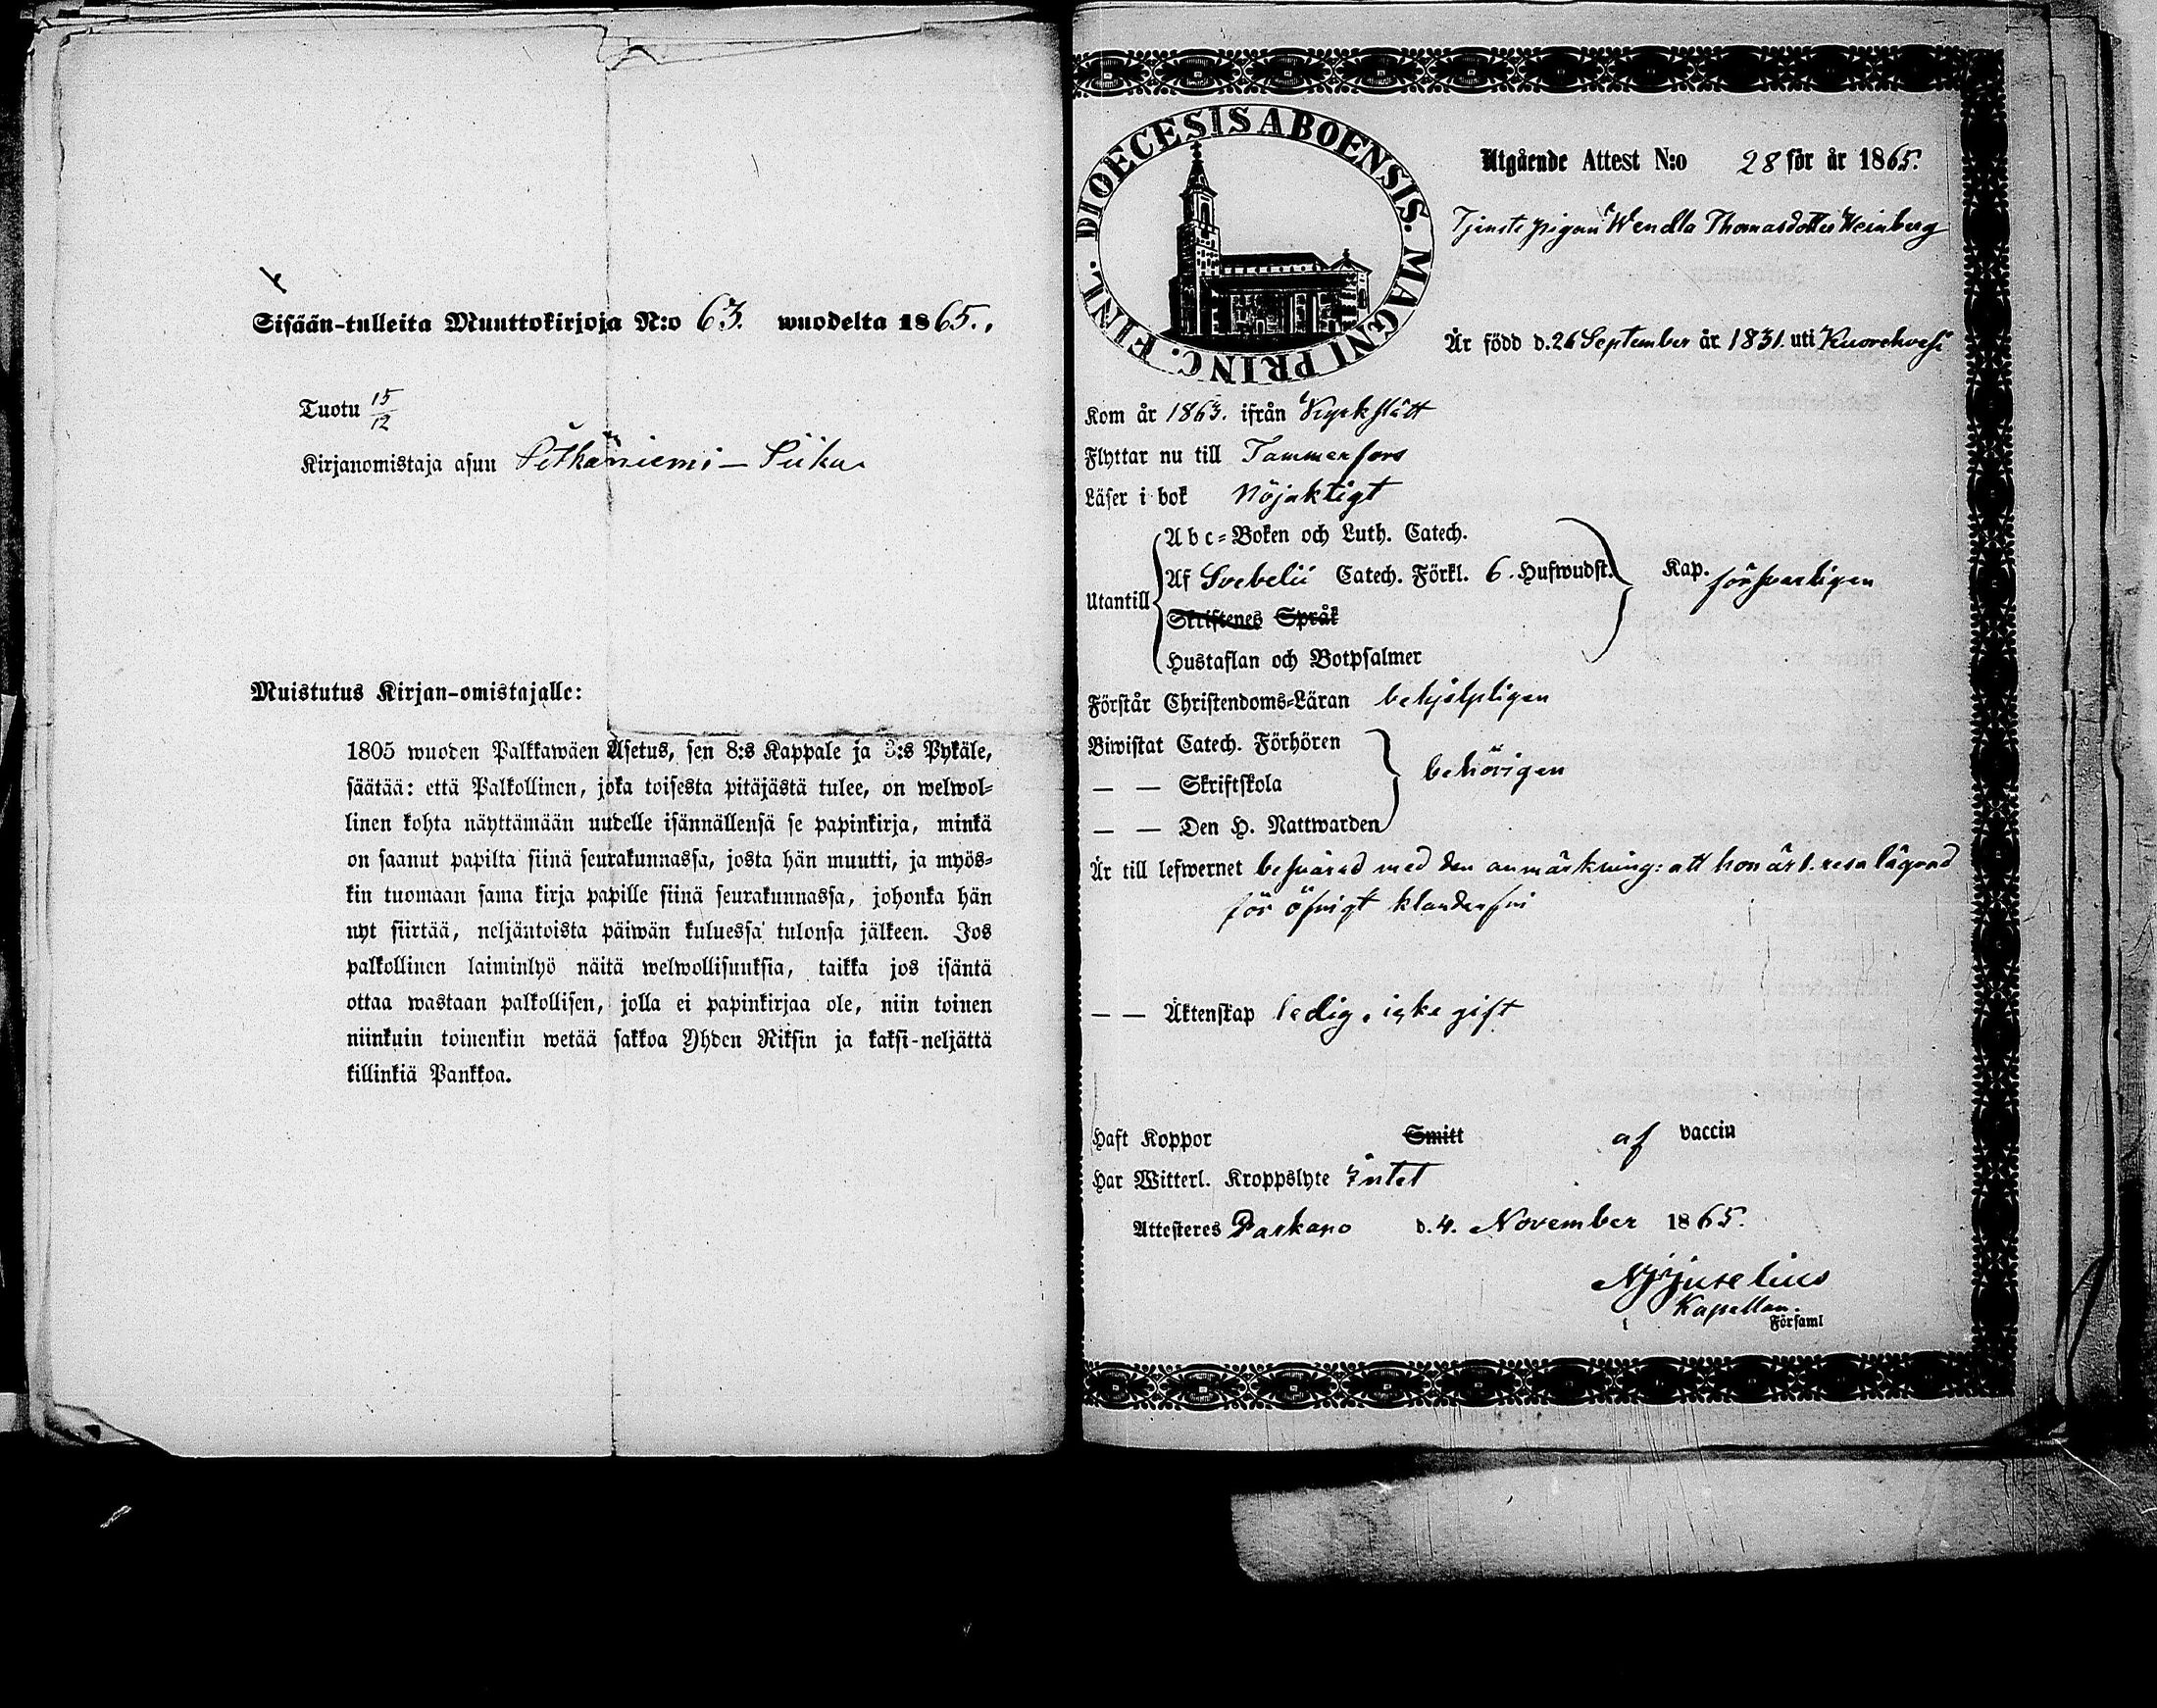 Sisään-tulleita Muuttokirjoja N:o 63. wuodelta 1865.
Tuotu 15/12
Kirjanomistaja asuu Pitkäniemi —
Muistutus Kirjan-omistajalle:
1805 wuoden Palkkawäen Asetus, sen 8:s Kappale ja 3:s Pykäle,
säätää: että Palkollinen, joka toisesta pitäjästä tulee, on welwol-
linen kohta näyttämään uudelle isännällensä se papinkirja, minkä
on saanut papilta siinä seurakunnassa, josta hän muutti, ja myös-
kin tuomaan sama kirja papille siinä seurakunnassa, johonka hän
nyt siirtää, neljäntoista päiwän kuluessa tulonsa jälkeen. Jos
palkollinen laiminlyö näitä welwollisuuksia, taikka jos isäntä
ottaa wastaan palkollisen, jolla ei papinkirjaa ole, niin toinen
niinkuin toinenkin wetää sakkoa Yhden Riksin ja kaksi-neljättä
killinkiä Pankkoa.
DIOECESIS ABOENSIS. MAGNI PRINC. FINL.
Utgående Attest N:o 28 för år 1865.
Tjenstepigan Wendla Thomasdotter Weinberg
Är född d. 26 September år 1831. uti Kuorehvesi
Kom år 1863. ifrån Kyrkslätt
Flyttar nu till Tammerfors
Läser i bok nöjaktigt
Utantill
Abc-Boken och Luth. Catech.
Af Svebelii Catech. Förkl. 6. Hufwudst. Kap. försvarligen
Skriftenes Språk
Hustaflan och Botpsalmer
Förstår Christendoms-Läran behjelpligen
Biwistat Catech. Förhören
— — Skriftskola behörigen
— — Den H. Nattwarden
Är till lefwernet besvärad med den anmärkning: att hon är 1. resa lägrad
för öfrigt klanderfri
— — Äktenskap ledig, icke gift
Haft Koppor Smitt af vaccin
Har Witterl. Kroppslyte Intet
Attesteres Parkano d. 4. November 1865.
Kapellan.
i Församl